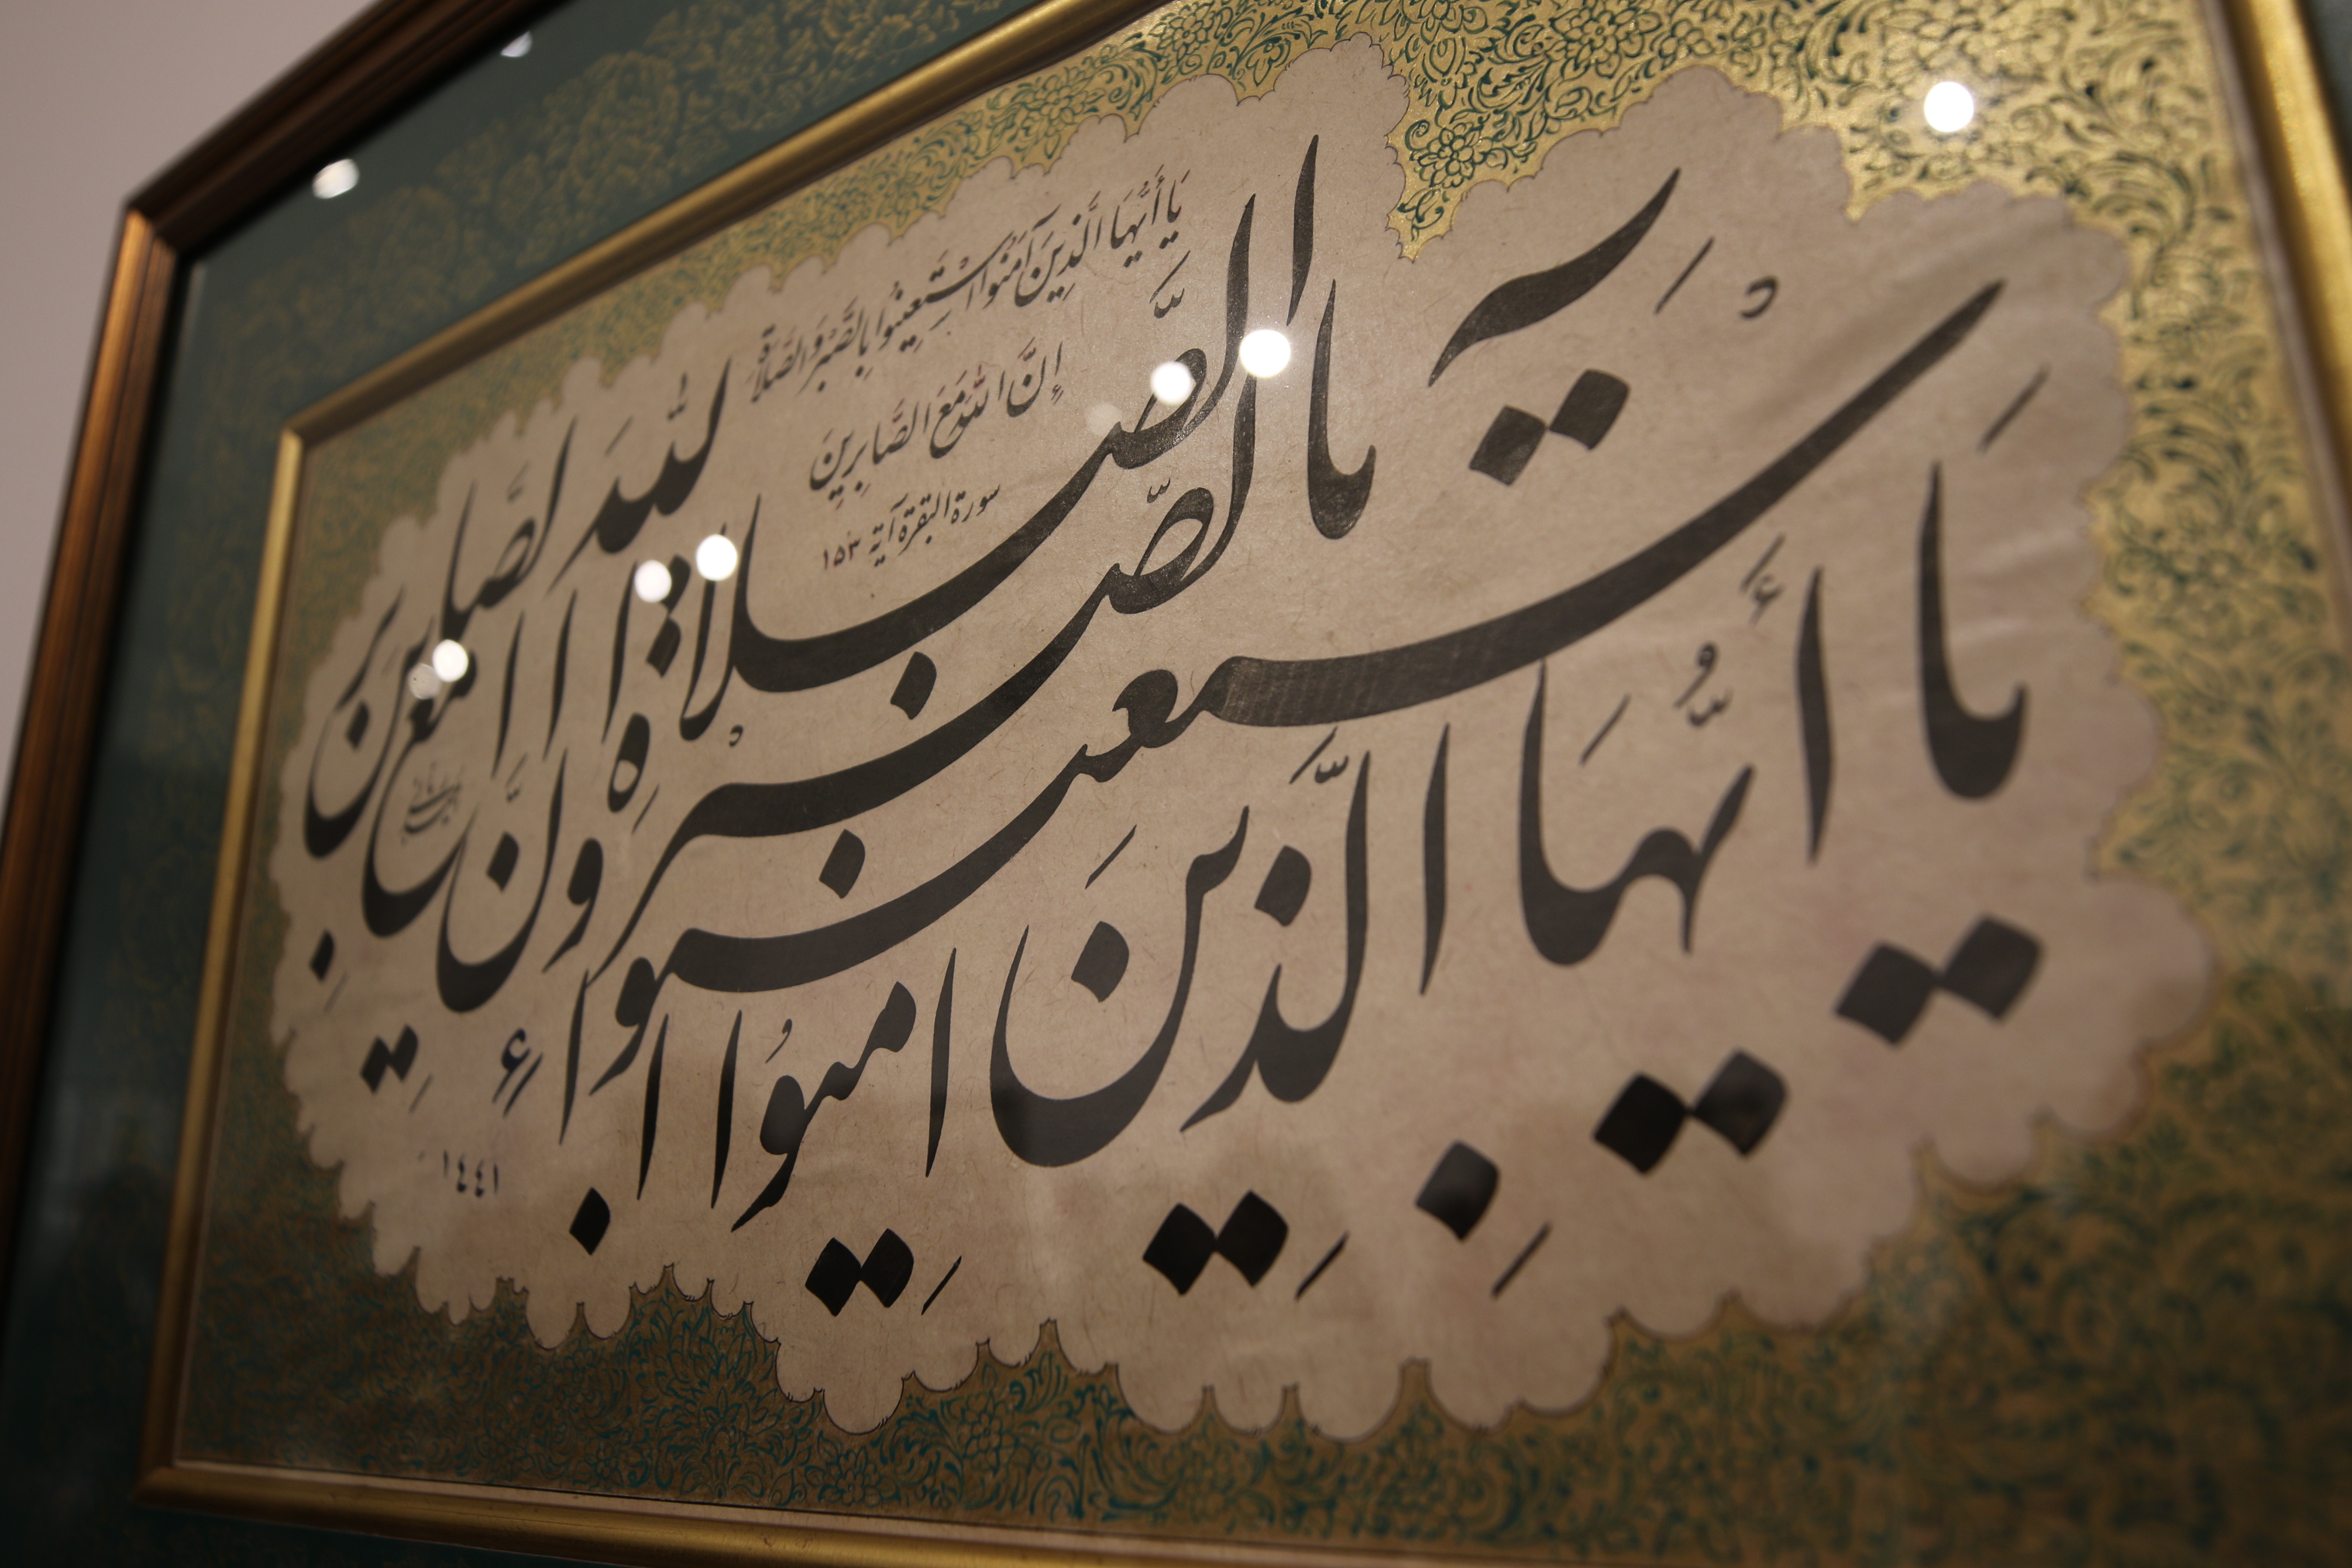 يَا أَيُّهَا الَّذِينَ آمَنُوا اسْتَعِينُوا بِالصَّبْرِ وَالصَّلَاةِ
إِنَّ اللَّهَ مَعَ الصَّابِرِينَ
سورة البقرة آية ١٥٣
يَا أَيُّهَا الَّذِينَ امِنُوا
اسْتَعِينوا بالصَّبر والصَّلاة
إِنَّ اللّٰهَ مَعَ الصَّابِرين
١٤٤١